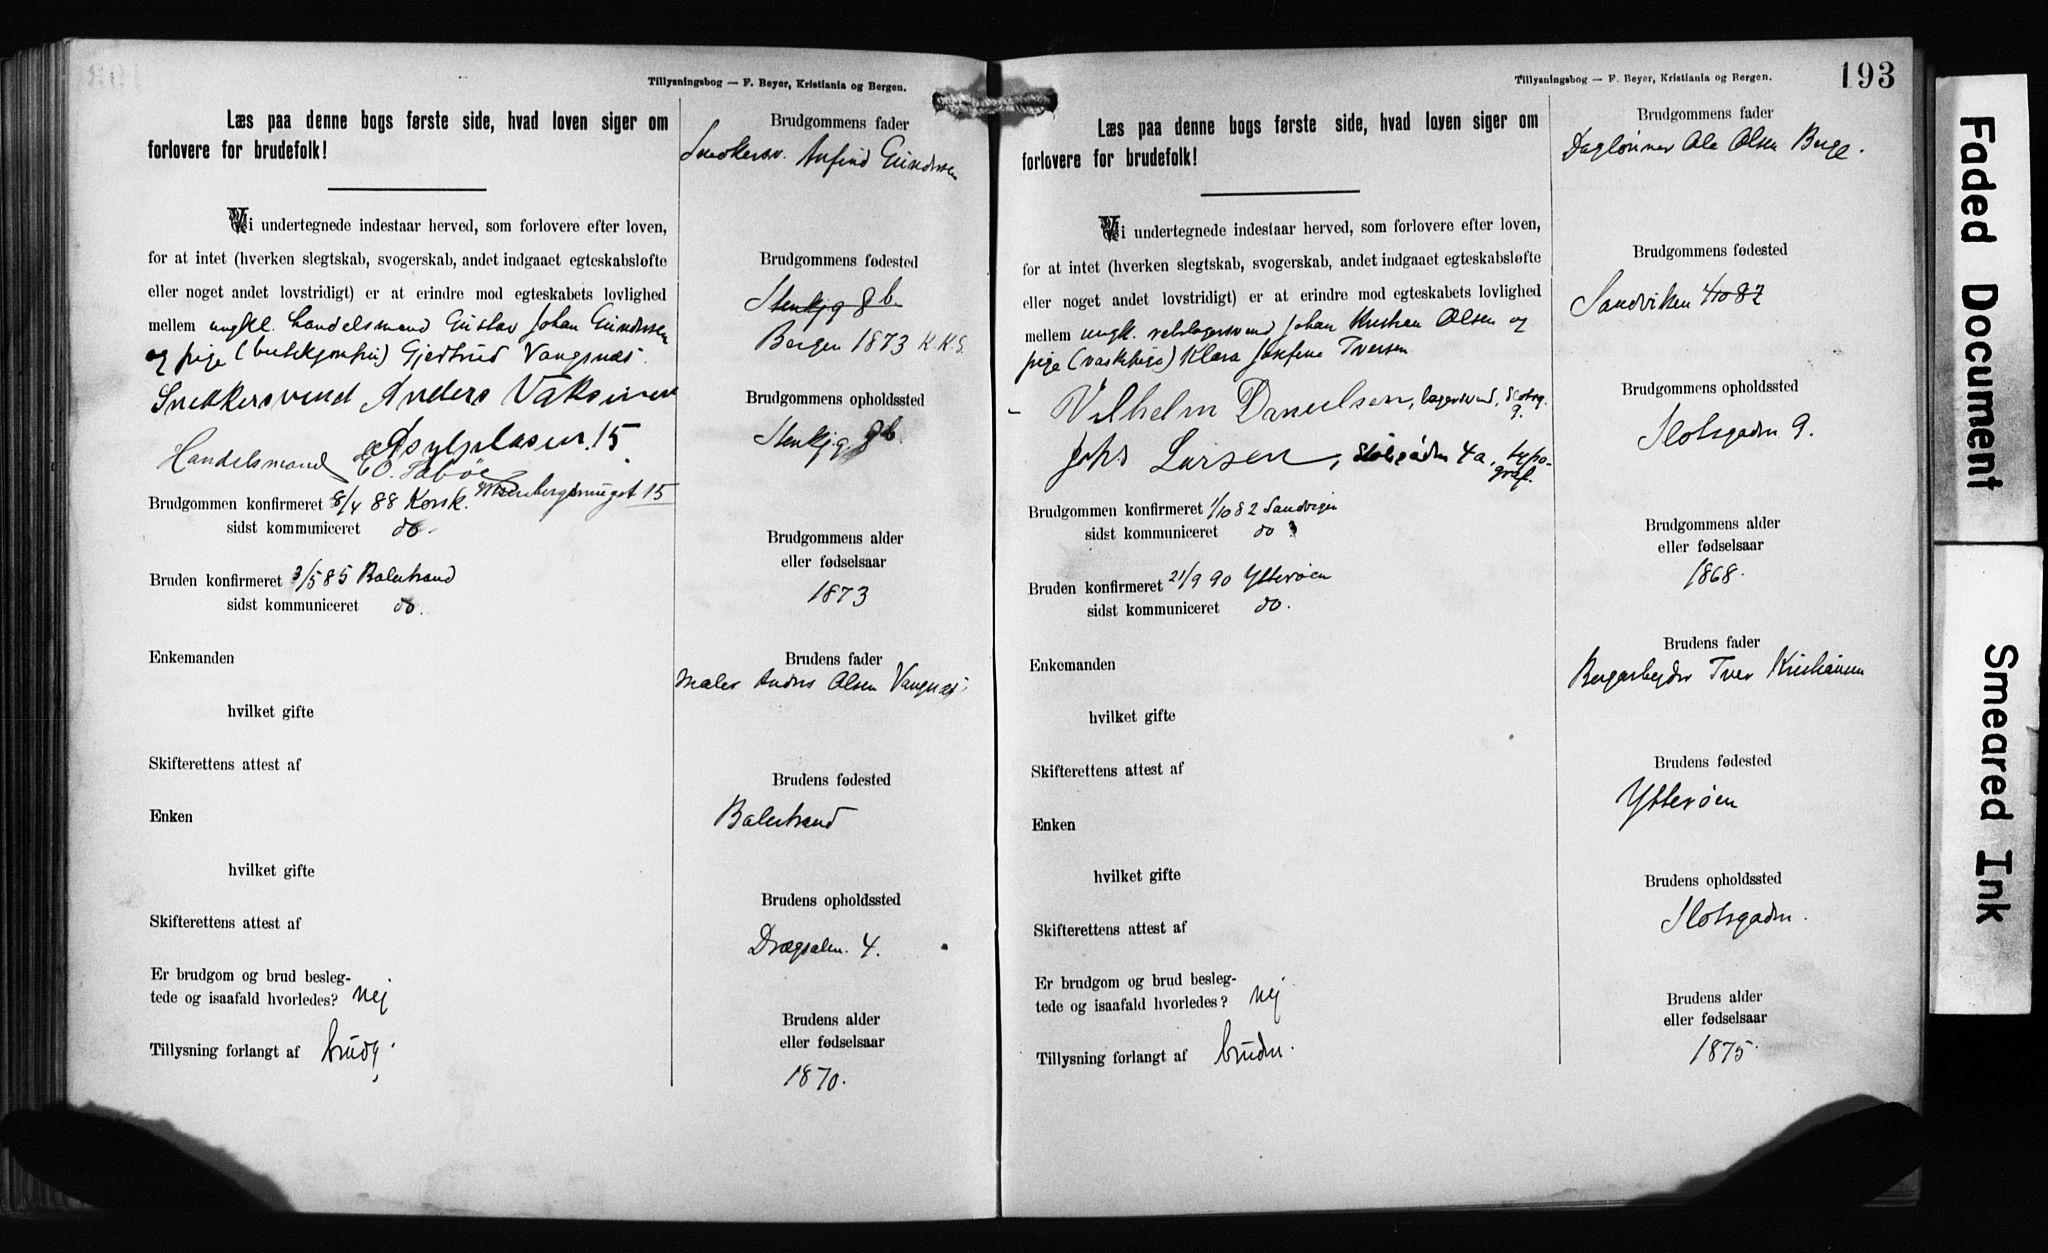 Tillysningsbog — F. Beyer, Kristiania og Bergen.
Læs paa denne bogs første side, hvad loven siger om
forlovere for brudefolk!
Vi undertegnede indestaar herved, som forlovere efter loven,
for at intet (hverken slegtskab, svogerskab, andet indgaaet egteskabsløfte
eller noget andet lovstridigt) er at erindre mod egteskabets lovlighed
mellem ungkl. handelsmand Gustav Johan Gundersen
og pige (butikjomfru) Gjertrud Vangsnæs.
Snekkersvend Anders Vaksinen
Asylplassen 15
Handelsmand E O. Sabøe
15
Brudgommen konfirmeret 8/4 88 Korsk.
sidst kommuniceret do.
Bruden konfirmeret 3/5 85 Balestrand
sidst kommuniceret do.
Enkemanden
hvilket gifte
Skifterettens attest af
Enken
hvilket gifte
Skifterettens attest af
Er brudgom og brud besleg-
tede og isaafald hvorledes? Nej
Tillysning forlangt af brudg.
Brudgommens fader
Snekkersv. Anfind Gundersen
Brudgommens fødested
Stenkjg 8 b.
Bergen 1873 K.K.G.
Brudgommens opholdssted
Stenkjg 8 b.
Brudgommens alder
eller fødselsaar
1873
Brudens fader
Maler Anders Olsen Vangnæs.
Brudens fødested
Balestrand
Brudens opholdssted
Drægsalm. 4.
Brudens alder
eller fødselsaar
1870.
Tillysningsbog — F. Beyer, Kristiania og Bergen.
193
Læs paa denne bogs første side, hvad loven siger om
forlovere for brudefolk!
Vi undertegnede indestaar herved, som forlovere efter loven,
for at intet (hverken slegtskab, svogerskab, andet indgaaet egteskabsløfte
eller noget andet lovstridigt) er at erindre mod egteskabets lovlighed
mellem ungk. rebslagersvend Johan Kristian Olsen og
pige (vaskepige) Klara Josefine Iversen
Vilhelm Danielsen, bagersvend, Slotsg.
9.
Johs Larsen, Slotsgaden 4a, typo-
graf.
Brudgommen konfirmeret 1/10 82 Sandvigen
sidst kommuniceret do
Bruden konfirmeret 21/9 90 Ytterøen
sidst kommuniceret do.
Enkemanden
hvilket gifte
Skifterettens attest af
Enken
hvilket gifte
Skifterettens attest af
Er brudgom og brud besleg-
tede og isaafald hvorledes? Nej
Tillysning forlangt af bruden.
Brudgommens fader
Daglønner Ole Olsen Berge.
Brudgommens fødested
Sandviken
Brudgommens opholdssted
Slotsgaden 9.
Brudgommens alder
eller fødselsaar
1868.
Brudens fader
Bergarbejder Iver Kristiansen
Brudens fødested
Ytterøen
Brudens opholdssted
Slotsgaden.
Brudens alder
eller fødselsaar
1875.
Faded Document
Smeared Ink